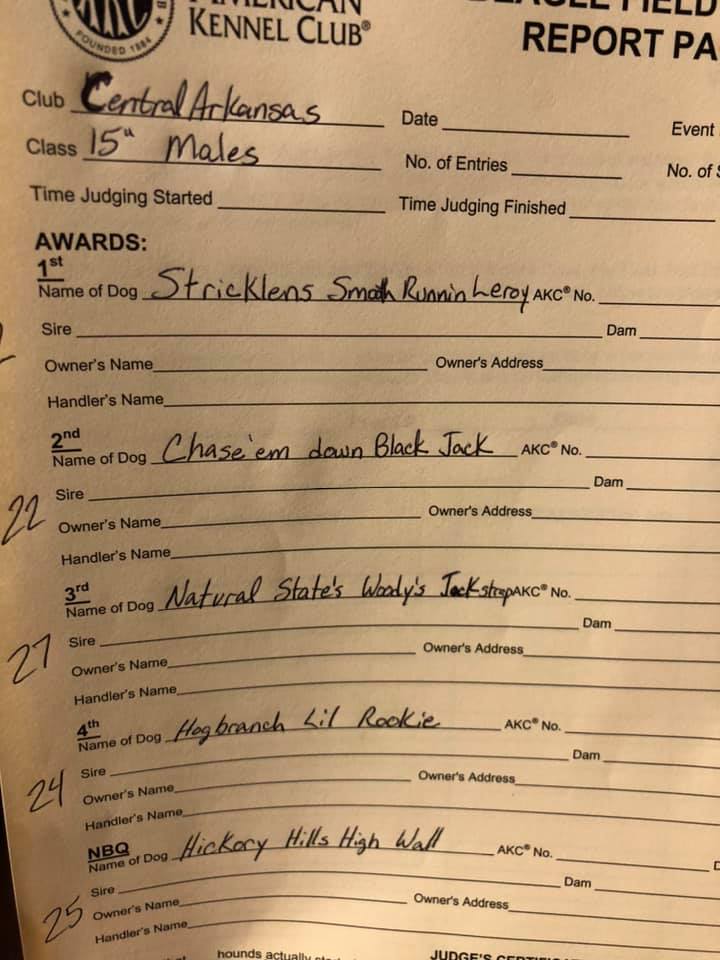 AMERICAN
KENNEL CLUB®
FOUNDED 1884
BEAGLE FIELD
REPORT PA
Club Central Arkansas
Date
Event
Class 15" Males
No. of Entries
No. of S
Time Judging Started
Time Judging Finished
AWARDS:
1st
Name of Dog Stricklens Smooth Runnin Leroy AKC® No.
Sire Dam
Owner's Name Owner's Address
Handler's Name
2nd
Name of Dog Chase 'em down Black Jack AKC® No.
Sire Dam
22
Owner's Name Owner's Address
Handler's Name
3rd
Name of Dog Natural State's Woody's Jockstrap AKC® No.
Sire Dam
27
Owner's Name Owner's Address
Handler's Name
4th
Name of Dog Hogbranch Lil Rookie AKC® No.
Sire Dam
24
Owner's Name Owner's Address
Handler's Name
NBQ
Name of Dog Hickory Hills High Wall AKC® No.
Sire Dam
25
Owner's Name Owner's Address
Handler's Name
hounds actually